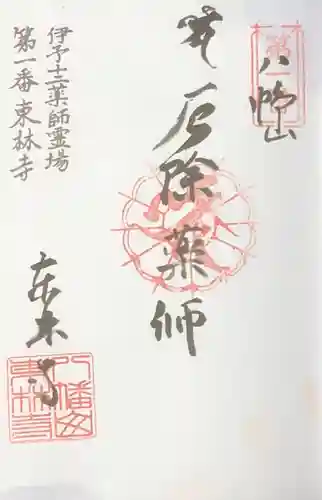 八幡山
第一
厄除薬師
伊予十二薬師霊場
第一番東林寺
東林寺
八幡山
東林寺